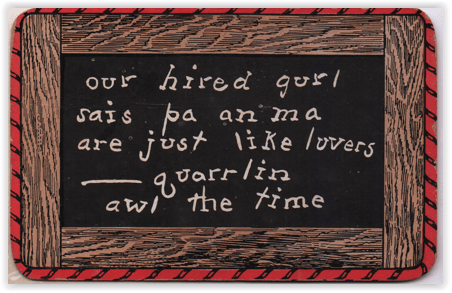 our hired gurl
sais pa an ma
are just like luvers
____ quarrlin
awl the time